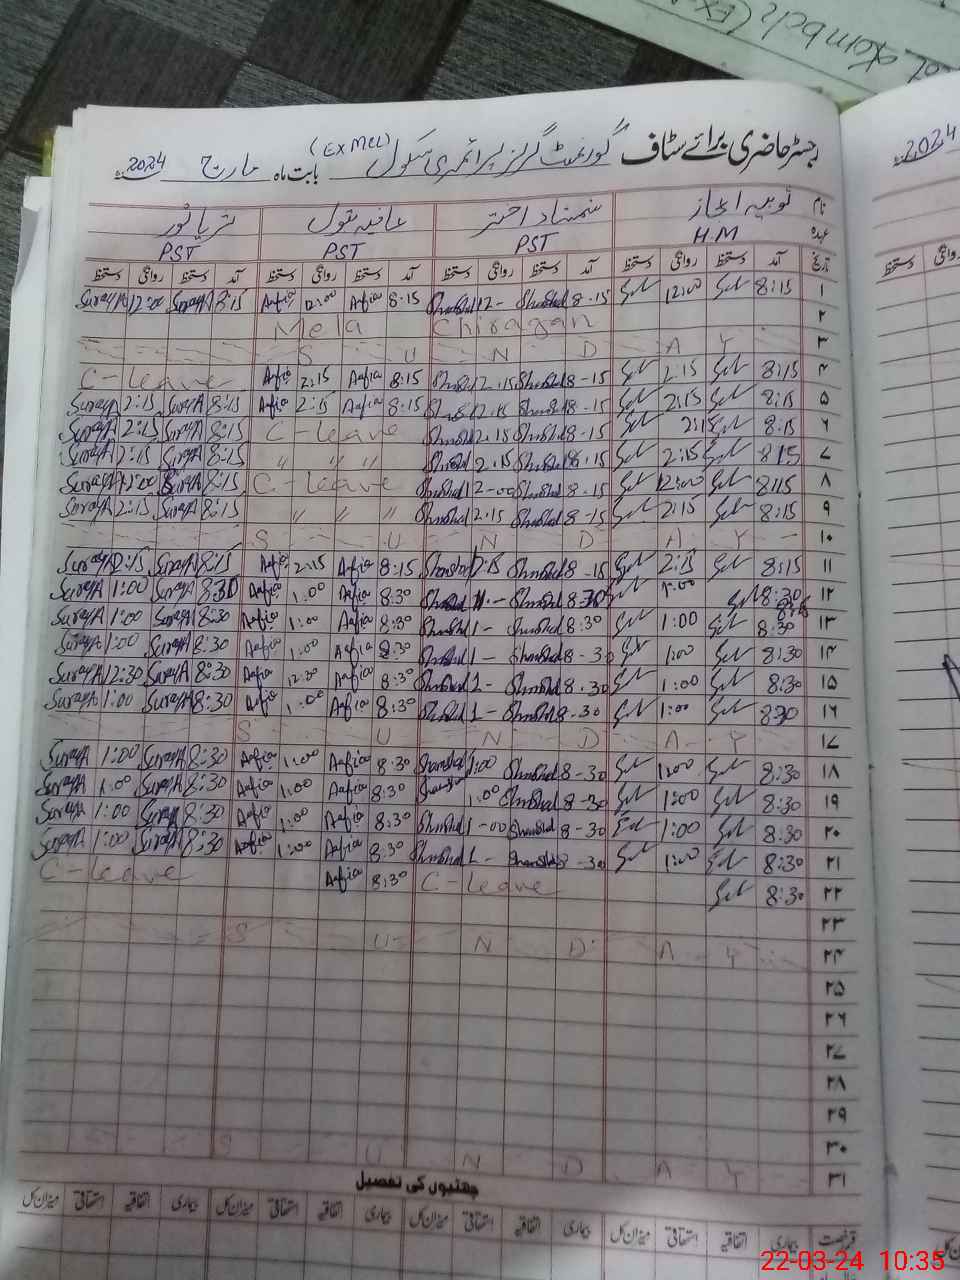 رجسٹر حاضری برائے سٹاف گورنمنٹ گرلز پرائمری سکول (Ex MCL) بابت ماہ مارچ 2024ء
نام ثوبیہ اعجاز شمشاد اختر عافیہ بتول ثریا انور
عہدہ H.M PST PST PST
تاریخ آمد دستخط روانگی دستخط آمد دستخط روانگی دستخط آمد دستخط روانگی دستخط آمد دستخط روانگی دستخط
۱ 8:15 12:00 8-15 Shamshad 12- Shamshad 8-15 Aafia 12:00 Aafia 8:15 SurayA 12:00 SurayA
۲ Mela Chiragan
۳ S U N D A Y
۴ 8:15 2:15 8-15 Shamshad 2.15 Shamshad 8:15 Aafia 2:15 Aafia C-leave
۵ 8:15 2:15 8-15 Shamshad 2.15 Shamshad 8:15 Aafia 2:15 Aafia 8:15 SurayA 2:15 SurayA
۶ 8:15 2:15 8-15 Shamshad 2.15 Shamshad C-leave 8:15 SurayA 2:15 SurayA
۷ 815 2:15 8.15 Shamshad 2.15 Shamshad " " " 8:15 SurayA 2:15 SurayA
۸ 8:15 12:00 8-15 Shamshad 12-00 Shamshad C-leave 8:15 SurayA 12:00 SurayA
۹ 8:15 2:15 8-15 Shamshad 2.15 Shamshad " " " 8:15 SurayA 2:15 SurayA
۱۰ S U N D A Y
۱۱ 8:15 2:15 8-15 Shamshad 2:15 Shamshad 8:15 Aafia 2:15 Aafia 8:15 SurayA 2:15 SurayA
۱۲ 8:30 1:00 8:30 Shamshad 1- Shamshad 8:30 Aafia 1:00 Aafia 8:30 SurayA 1:00 SurayA
۱۳ 8:30 1:00 8:30 Shamshad 1- Shamshad 8:30 Aafia 1:00 Aafia 8:30 SurayA 1:00 SurayA
۱۴ 8:30 1:00 8-30 Shamshad 1- Shamshad 8:30 Aafia 1:00 Aafia 8:30 SurayA 1:00 SurayA
۱۵ 8:30 1:00 8.30 Shamshad 1- Shamshad 8:30 Aafia 12:30 Aafia 8:30 SurayA 12:30 SurayA
۱۶ 830 1:00 8.30 Shamshad 1- Shamshad 8:30 Aafia 1:00 Aafia 8:30 SurayA 1:00 SurayA
۱۷ S U N D A Y
۱۸ 8:30 1:00 8-30 Shamshad 1:00 Shamshad 8:30 Aafia 1:00 Aafia 8:30 SurayA 1:00 SurayA
۱۹ 8:30 1:00 8-30 Shamshad 1:00 Shamshad 8:30 Aafia 1:00 Aafia 8:30 SurayA 1:00 SurayA
۲۰ 8:30 1:00 8-30 Shamshad 1-00 Shamshad 8:30 Aafia 1:00 Aafia 8:30 SurayA 1:00 SurayA
۲۱ 8:30 1:00 8-30 Shamshad 1- Shamshad 8:30 Aafia 1:00 Aafia 8:30 SurayA 1:00 SurayA
۲۲ 8:30 C-leave 8:30 Aafia C-leave
۲۳
۲۴ S U N D A Y
۲۵
۲۶
۲۷
۲۸
۲۹
۳۰
۳۱ S U N D A Y
چھٹیوں کی تفصیل
فرخصت بیماری اتفاقیہ استحقاقی میزان کل بیماری اتفاقیہ استحقاقی میزان کل بیماری اتفاقیہ استحقاقی میزان کل بیماری اتفاقیہ استحقاقی میزان کل
2024
روانگی دستخط
22-03-24 10:35